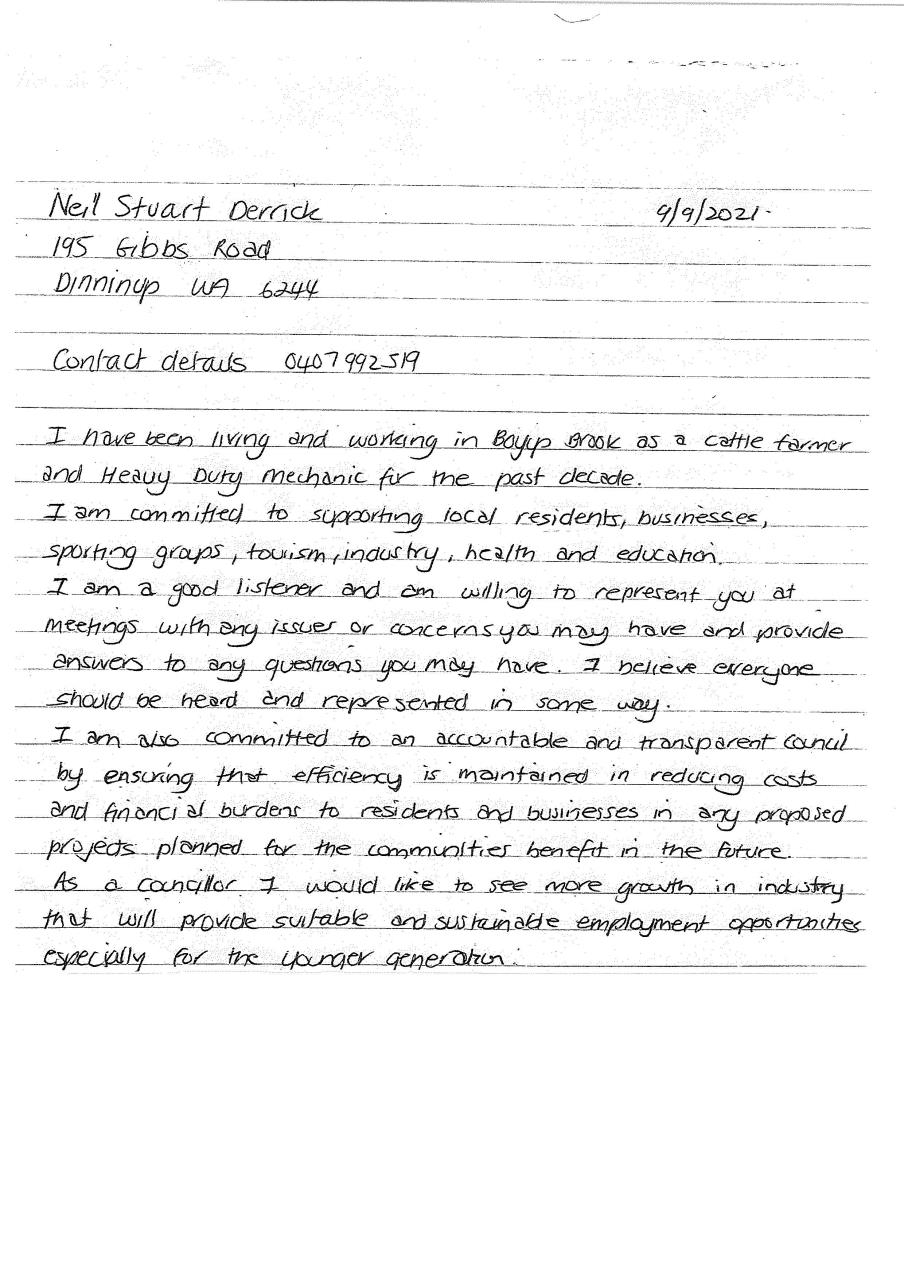 Neil Stuart Derrick 9/9/2021.
195 Gibbs Road
Dinninup WA 6244
Contact details 0407992519
I have been living and working in Boyup Brook as a cattle farmer
and Heavy Duty mechanic for the past decade.
I am committed to supporting local residents, businesses,
sporting groups, tourism, industry, health and education.
I am a good listener and am willing to represent you at
meetings with any issues or concerns you may have and provide
answers to any questions you may have. I believe everyone
should be heard and represented in some way.
I am also committed to an accountable and transparent Council
by ensuring that efficiency is maintained in reducing costs
and financial burdens to residents and businesses in any proposed
projects planned for the communities benefit in the future.
As a councillor I would like to see more growth in industry
that will provide suitable and sustainable employment opportunities
especially for the younger generation.